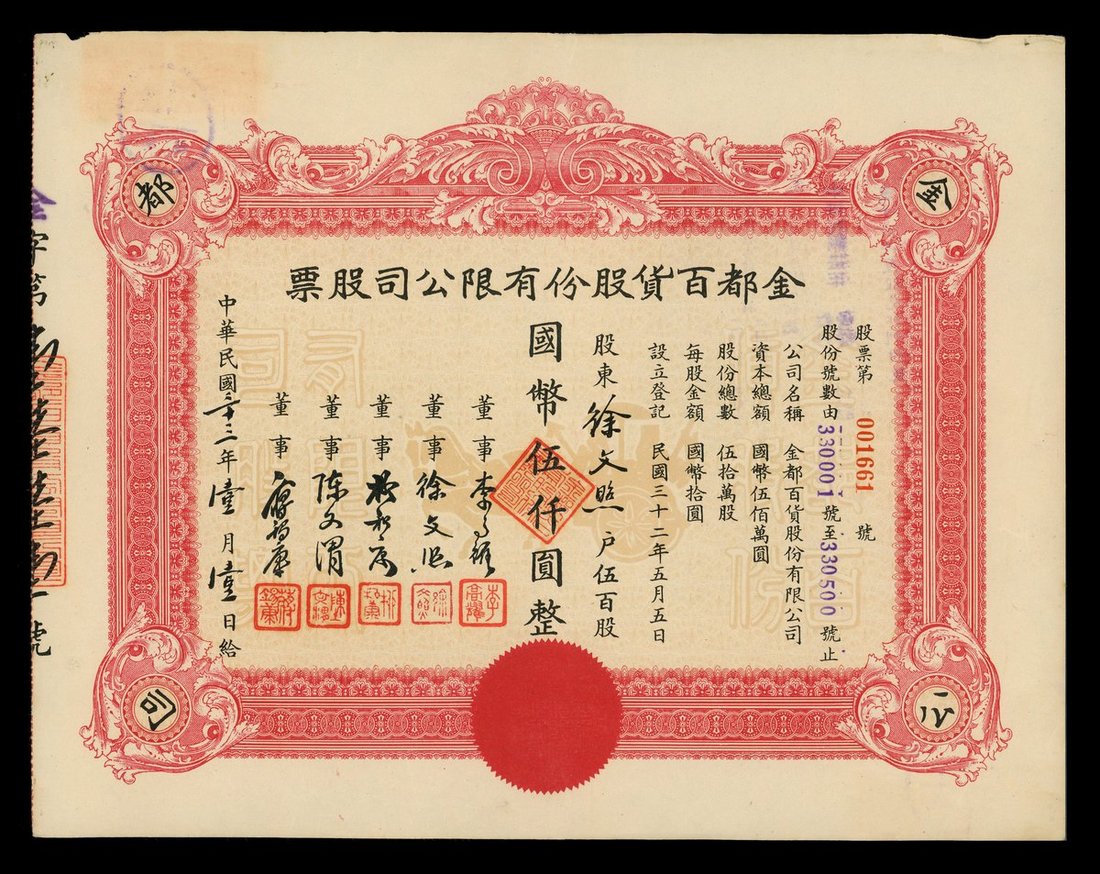 金都公司
金都百貨股份有限公司股票
股票第 001661 號
股份號數由330001號至330500號止
公司名稱 金都百貨股份有限公司
資本總額 國幣伍佰萬圓
股份總數 伍拾萬股
每股金額 國幣拾圓
設立登記 民國三十二年五月五日
股東徐文照戶伍百股
國幣伍仟圓整
董事 李
董事 徐文照
董事
董事 陳文渭
董事
中華民國三十三年壹月壹日給
金字第
號